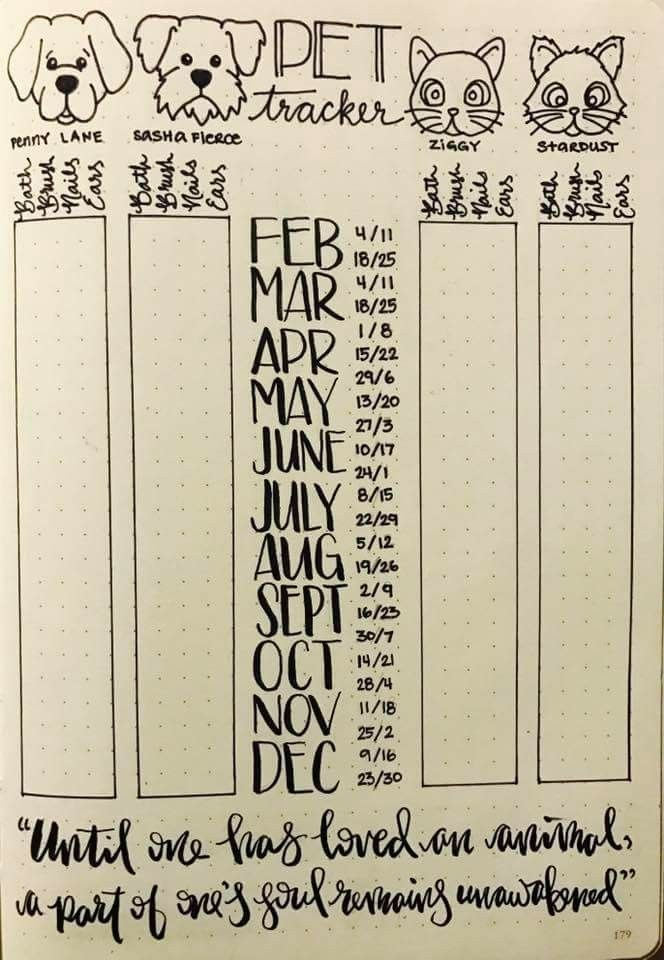 PET
tracker
PENNY LANE
SASHA FIERCE
ZIGGY
STARDUST
Bath Brush Nails Ears
Bath Brush Nails Ears
Bath Brush Nails Ears
Bath Brush Nails Ears
FEB 4/11
18/25
MAR 4/11
18/25
APR 1/8
15/22
29/6
MAY 13/20
27/3
JUNE 10/17
24/1
JULY 8/15
22/29
AUG 5/12
19/26
SEPT 2/9
16/23
30/7
OCT 14/21
28/4
NOV 11/18
25/2
DEC 9/16
23/30
"Until one has loved an animal,
a part of one's soul remains unawakened"
179